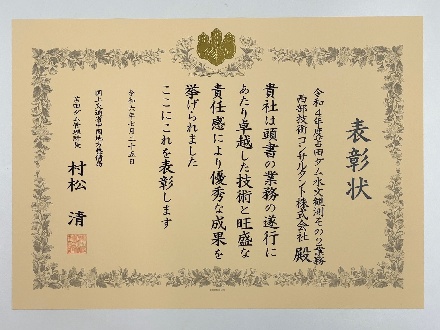 表彰状
令和4年度苫田ダム水文観測その2業務
西部技術コンサルタント株式会社 殿
貴社は頭書の業務の遂行に
あたり卓越した技術と旺盛な
責任感により優秀な成果を
挙げられました
ここにこれを表彰します
令和六年七月二十五日
国土交通省中国地方整備局
苫田ダム管理所長
村松 清